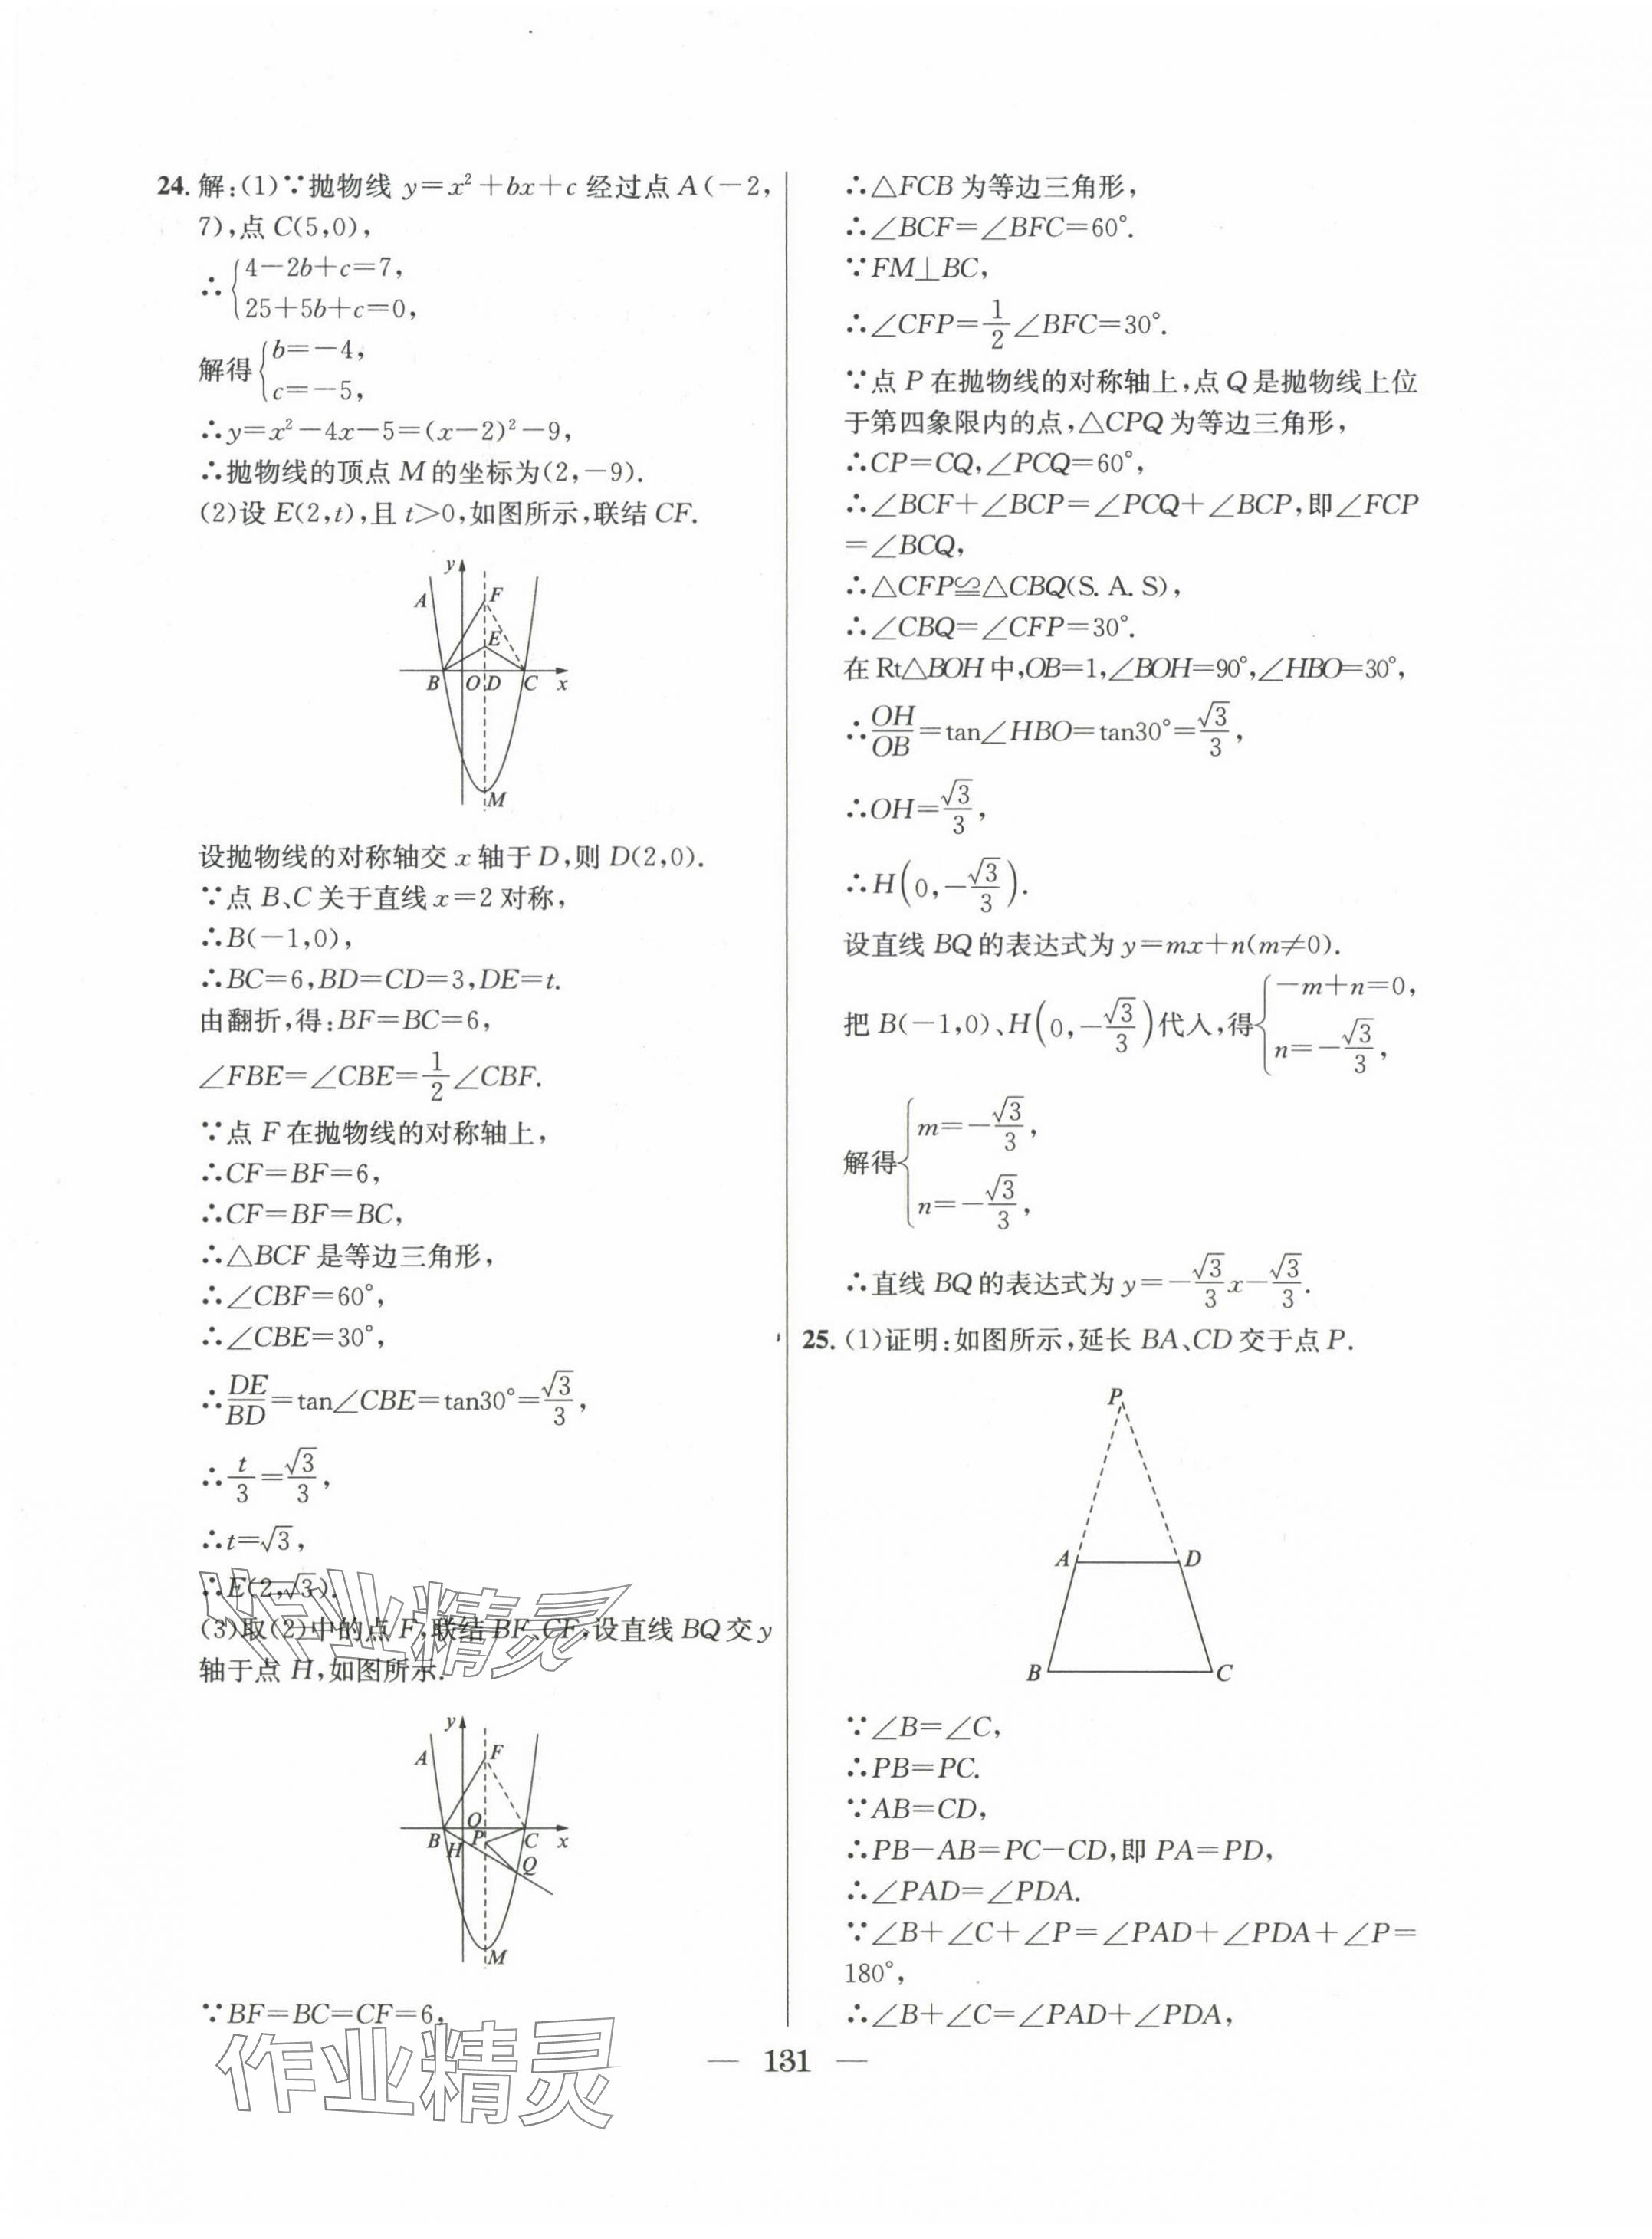 24. 解:(1)∵抛物线 y=x²+bx+c 经过点 A(-2,
7),点 C(5,0),
∴{4-2b+c=7,
25+5b+c=0,
解得{b=-4,
c=-5,
∴y=x²-4x-5=(x-2)²-9,
∴抛物线的顶点 M 的坐标为(2,-9).
(2)设 E(2,t),且 t>0,如图所示,联结 CF.
y
A
F
E
B O D C x
M
设抛物线的对称轴交 x 轴于 D,则 D(2,0).
∵点 B、C 关于直线 x=2 对称,
∴B(-1,0),
∴BC=6,BD=CD=3,DE=t.
由翻折,得:BF=BC=6,
∠FBE=∠CBE=1/2∠CBF.
∵点 F 在抛物线的对称轴上,
∴CF=BF=6,
∴CF=BF=BC,
∴△BCF 是等边三角形,
∴∠CBF=60°,
∴∠CBE=30°,
∴DE/BD=tan∠CBE=tan30°=√3/3,
∴t/3=√3/3,
∴t=√3,
∴E(2,√3).
(3)取(2)中的点 F,联结 BF、CF,设直线 BQ 交 y
轴于点 H,如图所示.
作业精灵
y
A
F
O
B H P C x
Q
M
∵BF=BC=CF=6,
作业精灵
∴△FCB 为等边三角形,
∴∠BCF=∠BFC=60°.
∵FM⊥BC,
∴∠CFP=1/2∠BFC=30°.
∵点 P 在抛物线的对称轴上,点 Q 是抛物线上位
于第四象限内的点,△CPQ 为等边三角形,
∴CP=CQ,∠PCQ=60°,
∴∠BCF+∠BCP=∠PCQ+∠BCP,即∠FCP
=∠BCQ,
∴△CFP≌△CBQ(S. A. S),
∴∠CBQ=∠CFP=30°.
在 Rt△BOH 中,OB=1,∠BOH=90°,∠HBO=30°,
∴OH/OB=tan∠HBO=tan30°=√3/3,
∴OH=√3/3,
∴H(0,-√3/3).
设直线 BQ 的表达式为 y=mx+n(m≠0).
把 B(-1,0)、H(0,-√3/3)代入,得{-m+n=0,
n=-√3/3,
解得{m=-√3/3,
n=-√3/3,
∴直线 BQ 的表达式为 y=-√3/3x-√3/3.
25. (1)证明:如图所示,延长 BA、CD 交于点 P.
P
A D
B C
∵∠B=∠C,
∴PB=PC.
∵AB=CD,
∴PB-AB=PC-CD,即 PA=PD,
∴∠PAD=∠PDA.
∵∠B+∠C+∠P=∠PAD+∠PDA+∠P=
180°,
∴∠B+∠C=∠PAD+∠PDA,
— 131 —